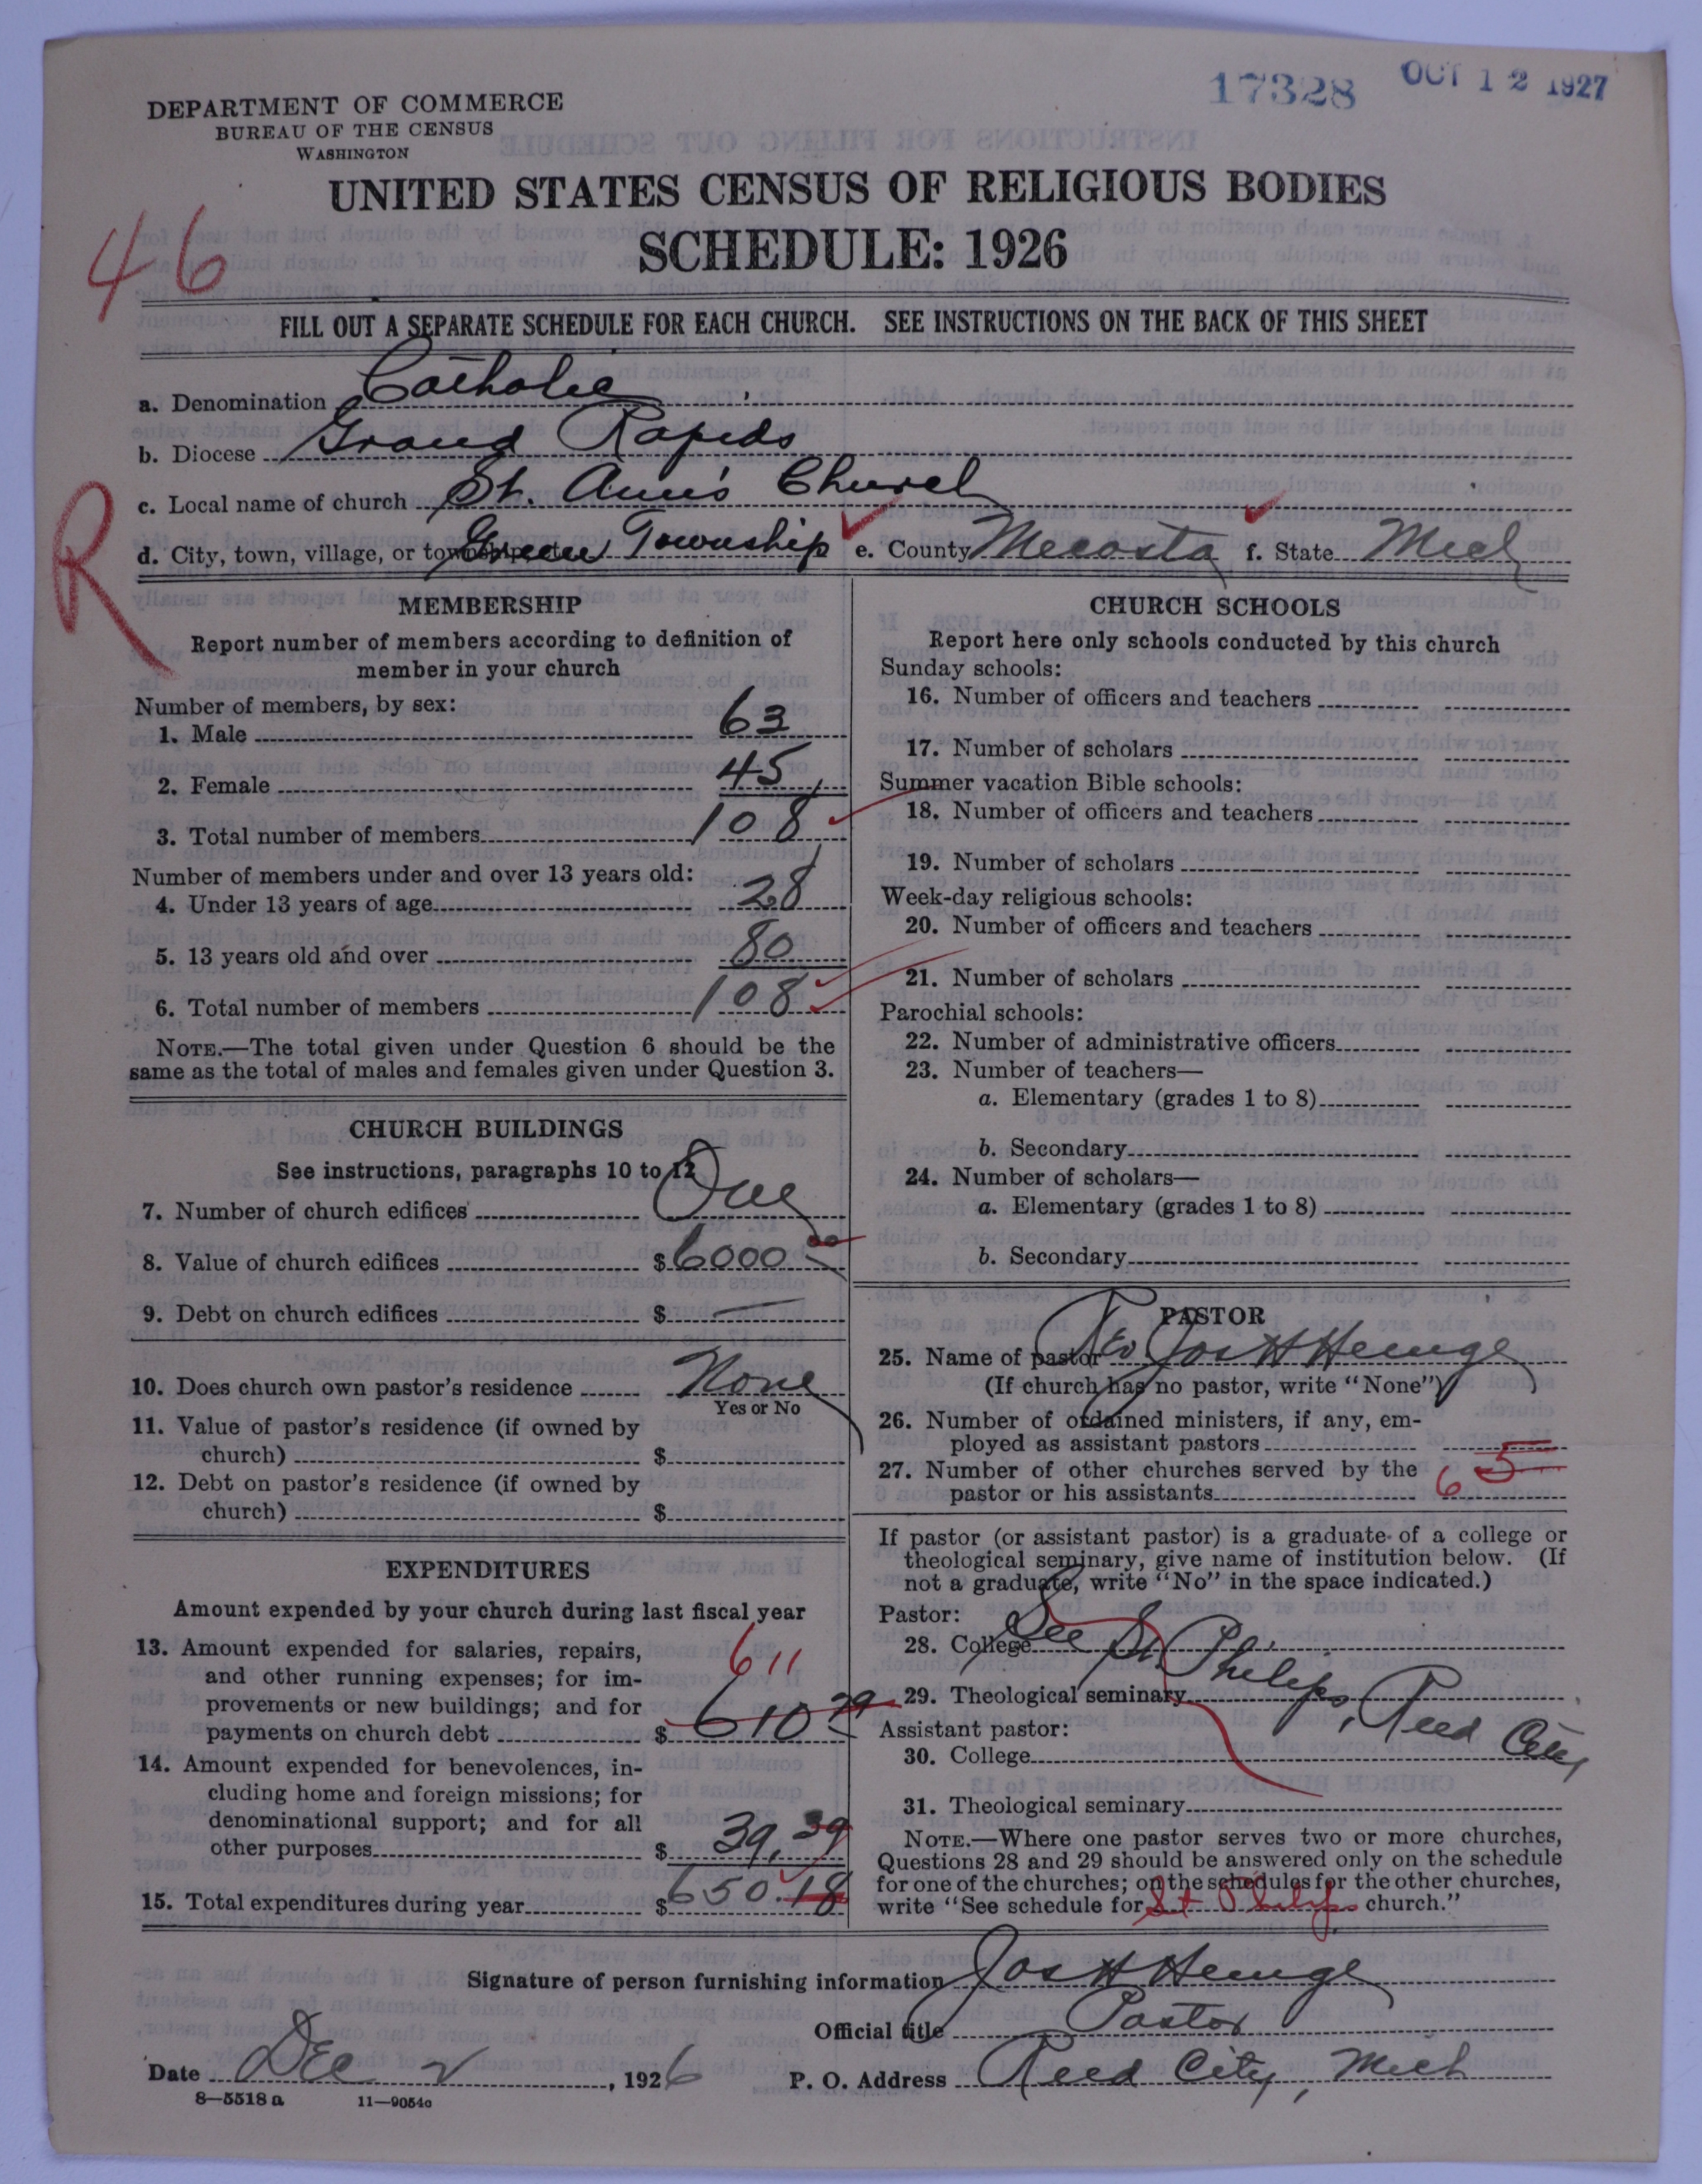 17328 OCT 12 1927
DEPARTMENT OF COMMERCE
BUREAU OF THE CENSUS
WASHINGTON
UNITED STATES CENSUS OF RELIGIOUS BODIES
SCHEDULE: 1926
46
FILL OUT A SEPARATE SCHEDULE FOR EACH CHURCH. SEE INSTRUCTIONS ON THE BACK OF THIS SHEET
a. Denomination Catholic
b. Diocese Grand Rapids
c. Local name of church St. Ann's Church
R
d. City, town, village, or township, etc. Green Township e. County Mecosta f. State Mich
MEMBERSHIP
Report number of members according to definition of
member in your church
Number of members, by sex:
1. Male 63
2. Female 45
3. Total number of members 108
Number of members under and over 13 years old:
4. Under 13 years of age 28
5. 13 years old and over 80
6. Total number of members 108
NOTE.—The total given under Question 6 should be the
same as the total of males and females given under Question 3.
CHURCH BUILDINGS
See instructions, paragraphs 10 to 12
7. Number of church edifices One
8. Value of church edifices $6000 00
9. Debt on church edifices $ —
10. Does church own pastor's residence None
Yes or No
11. Value of pastor's residence (if owned by
church) $
12. Debt on pastor's residence (if owned by
church) $
EXPENDITURES
Amount expended by your church during last fiscal year
13. Amount expended for salaries, repairs,
and other running expenses; for im-
provements or new buildings; and for
payments on church debt $ 610 79
611
14. Amount expended for benevolences, in-
cluding home and foreign missions; for
denominational support; and for all
other purposes $ 39,39
15. Total expenditures during year $650.18
CHURCH SCHOOLS
Report here only schools conducted by this church
Sunday schools:
16. Number of officers and teachers
17. Number of scholars
Summer vacation Bible schools:
18. Number of officers and teachers
19. Number of scholars
Week-day religious schools:
20. Number of officers and teachers
21. Number of scholars
Parochial schools:
22. Number of administrative officers
23. Number of teachers—
a. Elementary (grades 1 to 8)
b. Secondary
24. Number of scholars—
a. Elementary (grades 1 to 8)
b. Secondary
PASTOR
25. Name of pastor Rev Jos H Hemge
(If church has no pastor, write "None")
26. Number of ordained ministers, if any, em-
ployed as assistant pastors
27. Number of other churches served by the
pastor or his assistants 6 5
If pastor (or assistant pastor) is a graduate of a college or
theological seminary, give name of institution below. (If
not a graduate, write "No" in the space indicated.)
Pastor:
28. College See St. Philips, Reed City
29. Theological seminary
Assistant pastor:
30. College
31. Theological seminary
NOTE.—Where one pastor serves two or more churches,
Questions 28 and 29 should be answered only on the schedule
for one of the churches; on the schedules for the other churches,
write "See schedule for St Philips church."
Signature of person furnishing information Jos H Hemge
Official title Pastor
Date Dec 2, 1926 P. O. Address Reed City, Mich
8—5518 a 11—9054a